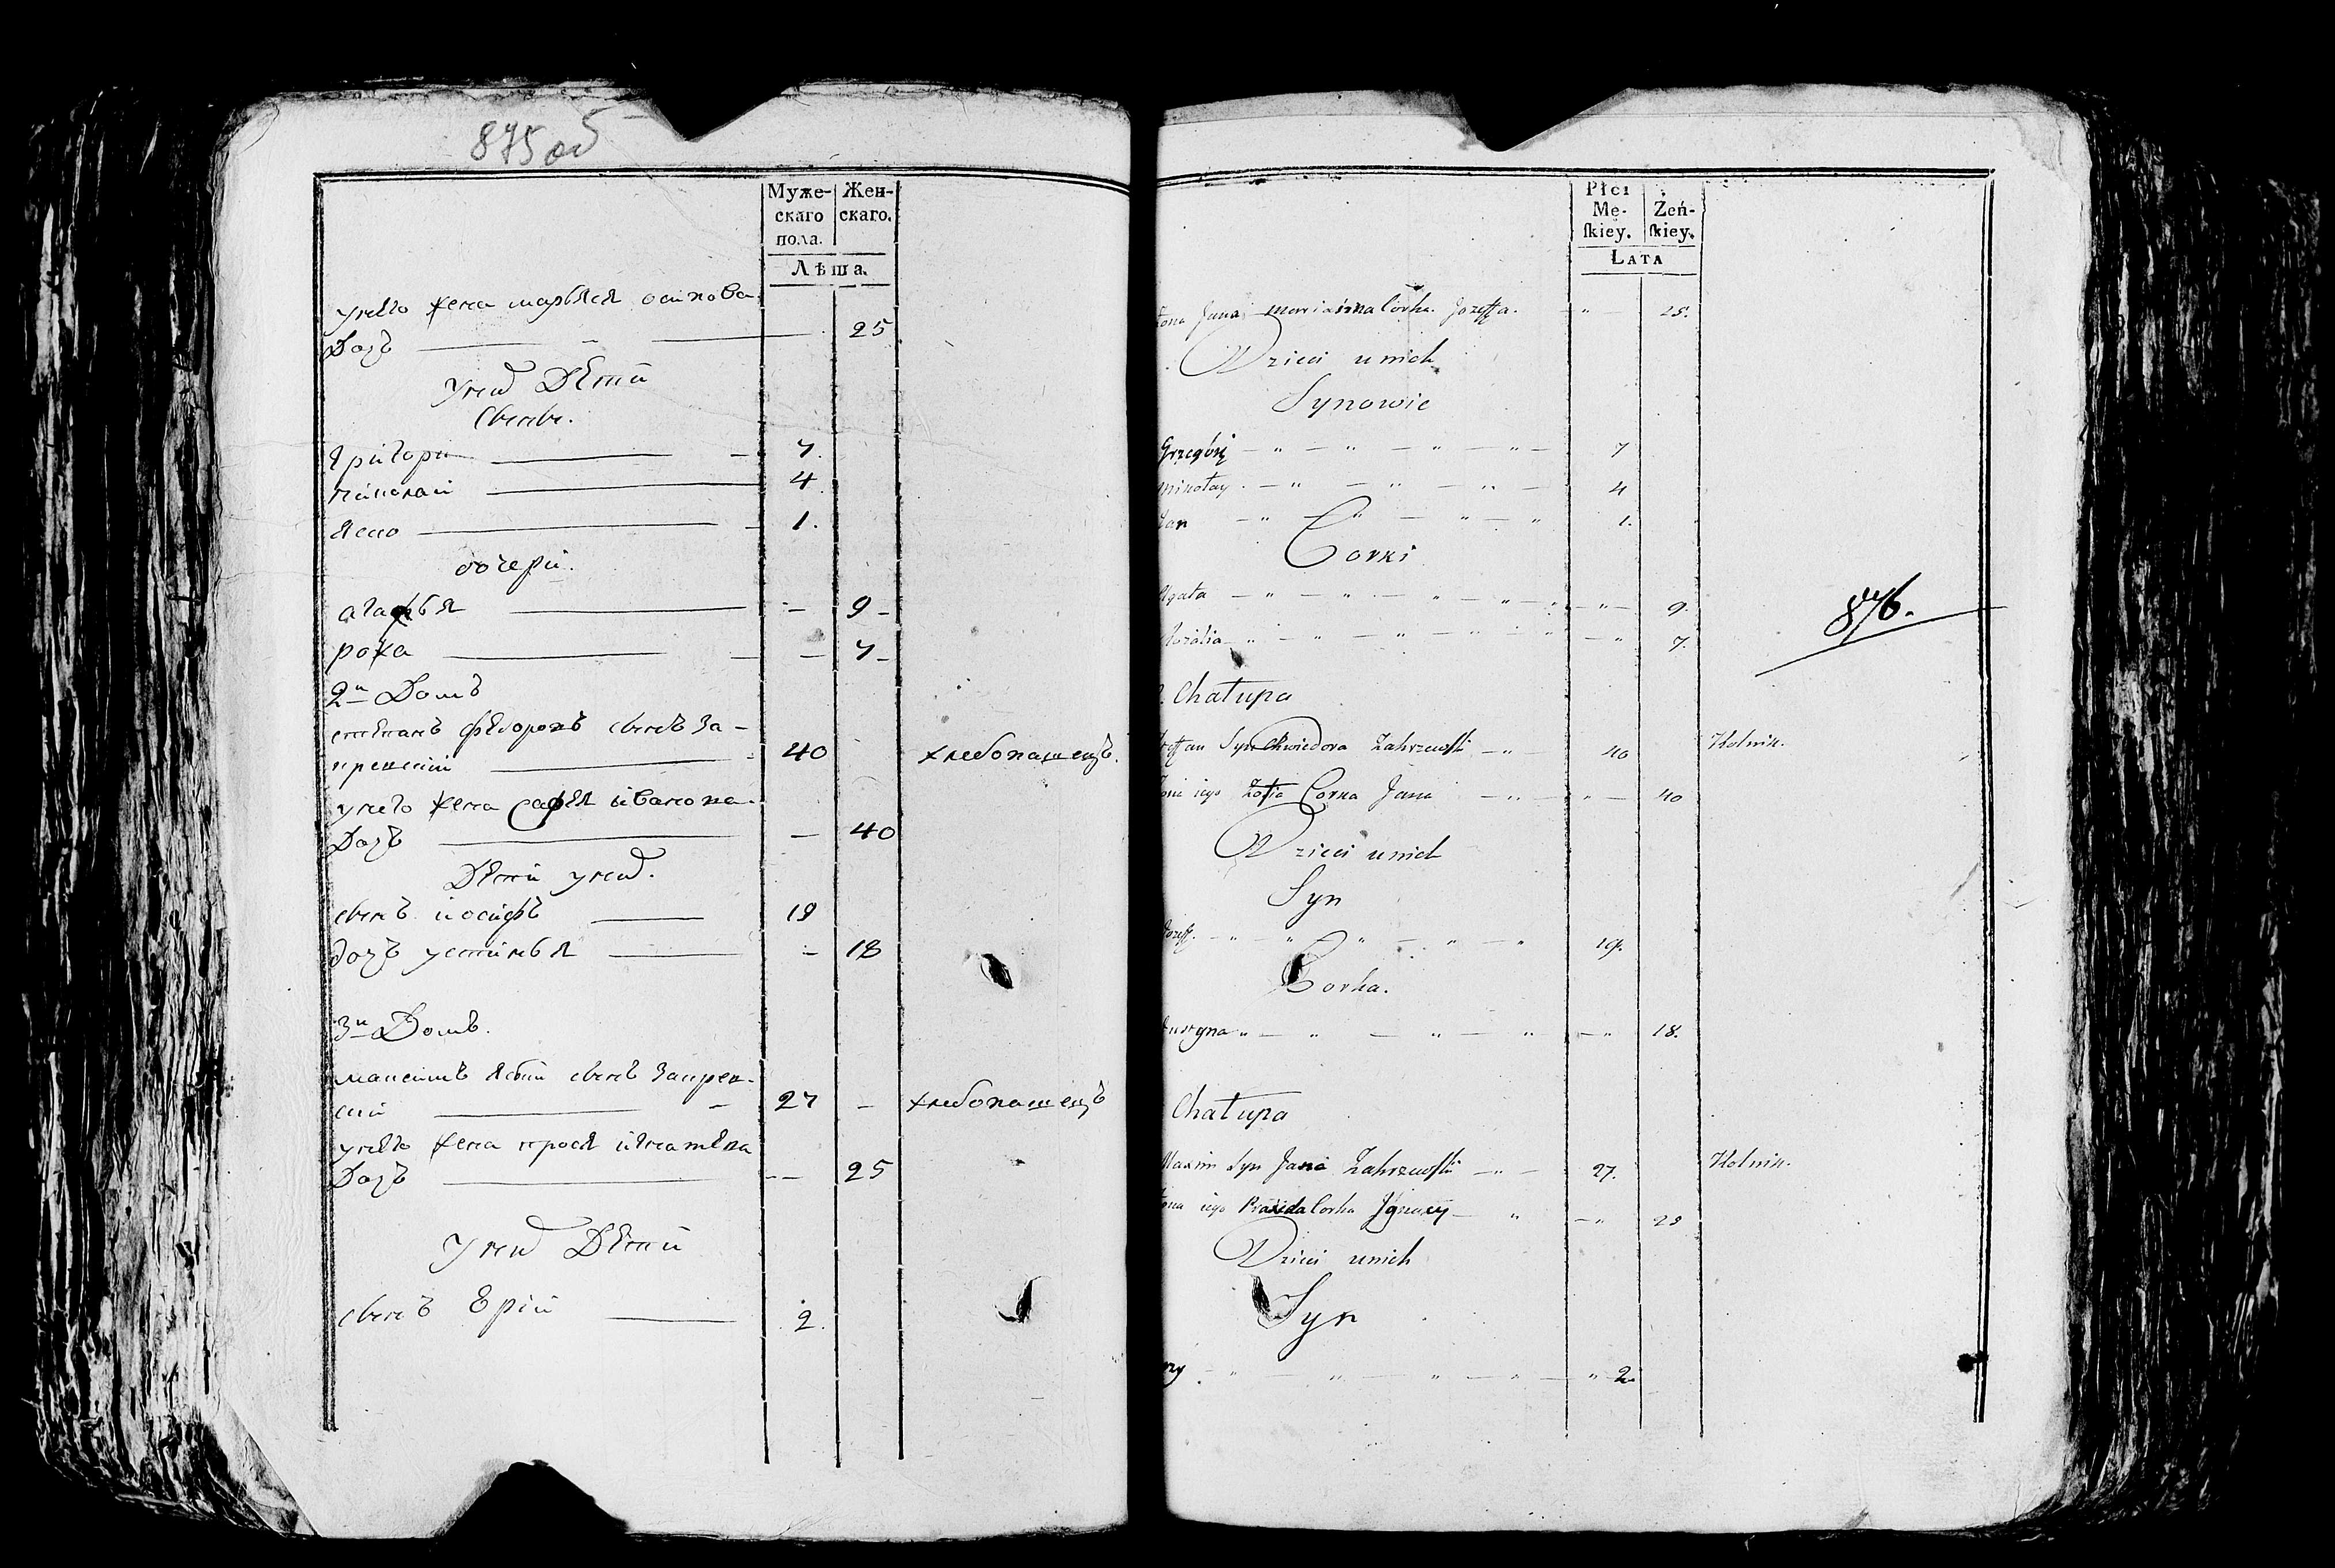 875об
Муже- Жен-
скаго скаго.
пола.
Лѣта.
унего жена марьяся осипова
Дочь 25
Уних Дѣти
Сыны.
Григори 7.
николай 4
Ясю 1.
дочери.
агафья 9
рожа 7
2й Домъ
степанъ федоровъ сынъ За-
кревский 40 хлебопашецъ.
унего жена софѣя ивановна
Дочь 40
Дѣти уних.
сынъ иосифъ 19
дочь устинья 18
3й Домъ.
максимъ Ясьти сынъ Закрев-
ский 27 хлебопашецъ
унего жена прося игнатова
Дочь 25
Уних Дѣти
сынъ Ерий 2.
Płci
Mę- Żeń-
skiey. skiey.
LATA
Żona Jana marianna Corka Jozeffa. 25.
Dzieci unich
Synowie
Grzegórz 7
mikołay 4
Jan 1.
Corki
Agata 9.
Rozalia 7.
876.
2. Chałupa
Steffan Syn Chwiedora Zakrzewski 40 Rolnik.
Żona iego Zofia Corka Jana 40
Dzieci unich
Syn
Jozeff 19.
Corka.
Justyna 18.
Chałupa
Maxim Syn Jana Zakrzewski 27. Rolnik.
Żona iego Praxida Corka Ignacy 25
Dzieci unich
Syn
2.